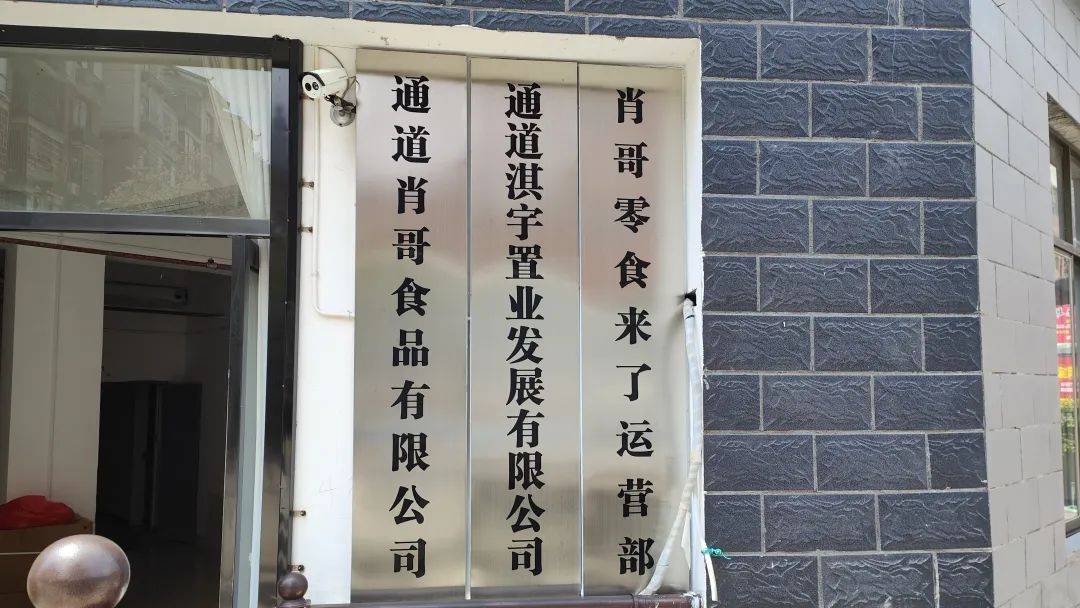 通道肖哥食品有限公司
通道淇宇置业发展有限公司
肖哥零食来了运营部